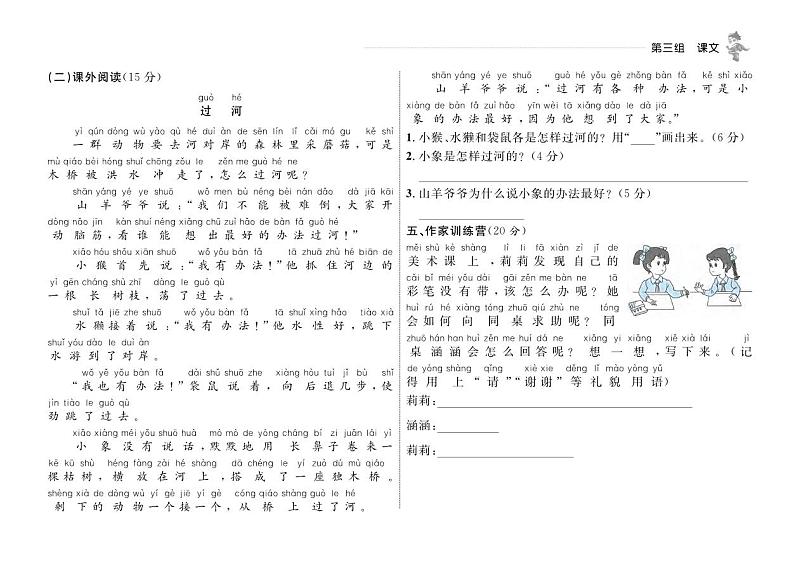 第三组 课文
(二)课外阅读(15分)
guò hé
过 河
yì qún dòng wù yào qù hé duì àn de sēn lín lǐ cǎi mó gu kě shì
一群动物要去河对岸的森林里采蘑菇,可是
mù qiáo bèi hóng shuǐ chōng zǒu le zěn me guò hé ne
木桥被洪水冲走了,怎么过河呢?
shān yáng yé ye shuō wǒ men bù néng bèi nán dǎo dà jiā kāi
山羊爷爷说:“我们不能被难倒,大家开
dòng nǎo jīn kàn shuí néng xiǎng chū zuì hǎo de bàn fǎ guò hé
动脑筋,看谁能想出最好的办法过河!”
xiǎo hóu shǒu xiān shuō wǒ yǒu bàn fǎ tā zhuā zhù hé biān de
小猴首先说:“我有办法!”他抓住河边的
yì gēn cháng shù zhī dàng le guò qù
一根长树枝,荡了过去。
shuǐ tǎ jiē zhe shuō wǒ yǒu bàn fǎ tā shuǐ xìng hǎo tiào xià
水獭接着说:“我有办法!”他水性好,跳下
shuǐ yóu dào le duì àn
水游到了对岸。
wǒ yě yǒu bàn fǎ dài shǔ shuō zhe xiàng hòu tuì jǐ bù shǐ
“我也有办法!”袋鼠说着,向后退几步,使
jìn tiào le guò qù
劲跳了过去。
xiǎo xiàng méi yǒu shuō huà mò mò de yòng cháng bí zi juǎn lái yì
小象没有说话,默默地用长鼻子卷来一
kē kū shù héng fàng zài hé shàng dā chéng le yí zuò dú mù qiáo
棵枯树,横放在河上,搭成了一座独木桥。
shèng xià de dòng wù yí gè jiē yí gè cóng qiáo shang guò le hé
剩下的动物一个接一个,从桥上过了河。
shān yáng yé ye shuō guò hé yǒu gè zhǒng bàn fǎ kě shì xiǎo
山羊爷爷说:“过河有各种办法,可是小
xiàng de bàn fǎ zuì hǎo yīn wèi tā xiǎng dào le dà jiā
象的办法最好,因为他想到了大家。”
1.小猴、水獭和袋鼠各是怎样过河的?用“____”画出来。(6分)
2.小象是怎样过河的?(4分)
3.山羊爷爷为什么说小象的办法最好?(5分)
五、作家训练营(20分)
měi shù kè shàng lì li fā xiàn zì jǐ de
美术课上,莉莉发现自己的
cǎi bǐ méi yǒu dài gāi zěn me bàn ne tā
彩笔没有带,该怎么办呢?她
huì rú hé xiàng tóng zhuō qiú zhù ne tóng
会如何向同桌求助呢?同
zhuō hán han huì zěn me huí dá ne xiǎng yi xiǎng xiě xià lái jì
桌涵涵会怎么回答呢?想一想,写下来。(记
de yòng shàng qǐng xiè xie děng lǐ mào yòng yǔ
得用上“请”“谢谢”等礼貌用语)
莉莉:
涵涵:
莉莉: